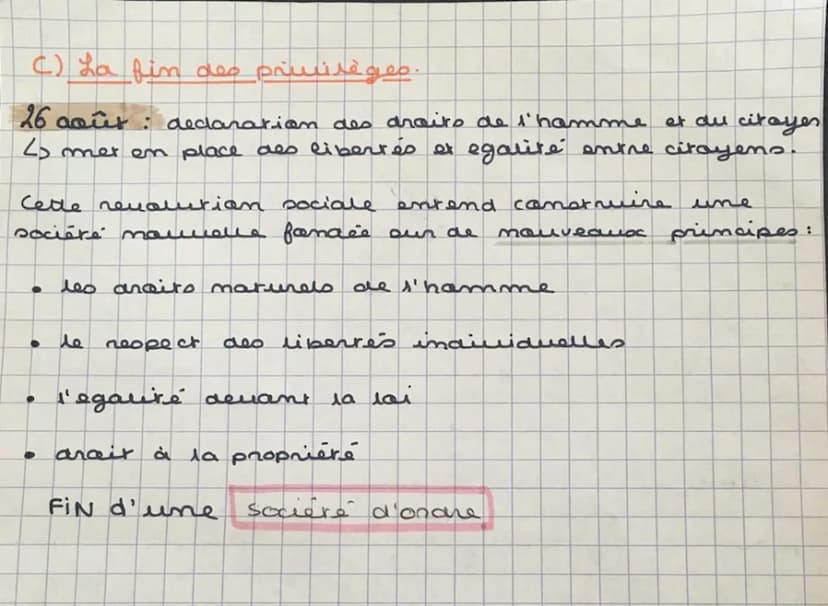 C) La fin des privilèges.
26 août : declaration des droits de l'homme et du citoyen
↳ met en place des libertés et egalité entre citoyens.
Cette revolution sociale entend construire une
société nouvelle fondée sur de nouveaux principes :
• les droits naturels de l'homme
• le respect des libertés individuelles
• l'egalité devant la loi
• droit à la propriété
FiN d'une société d'ordre